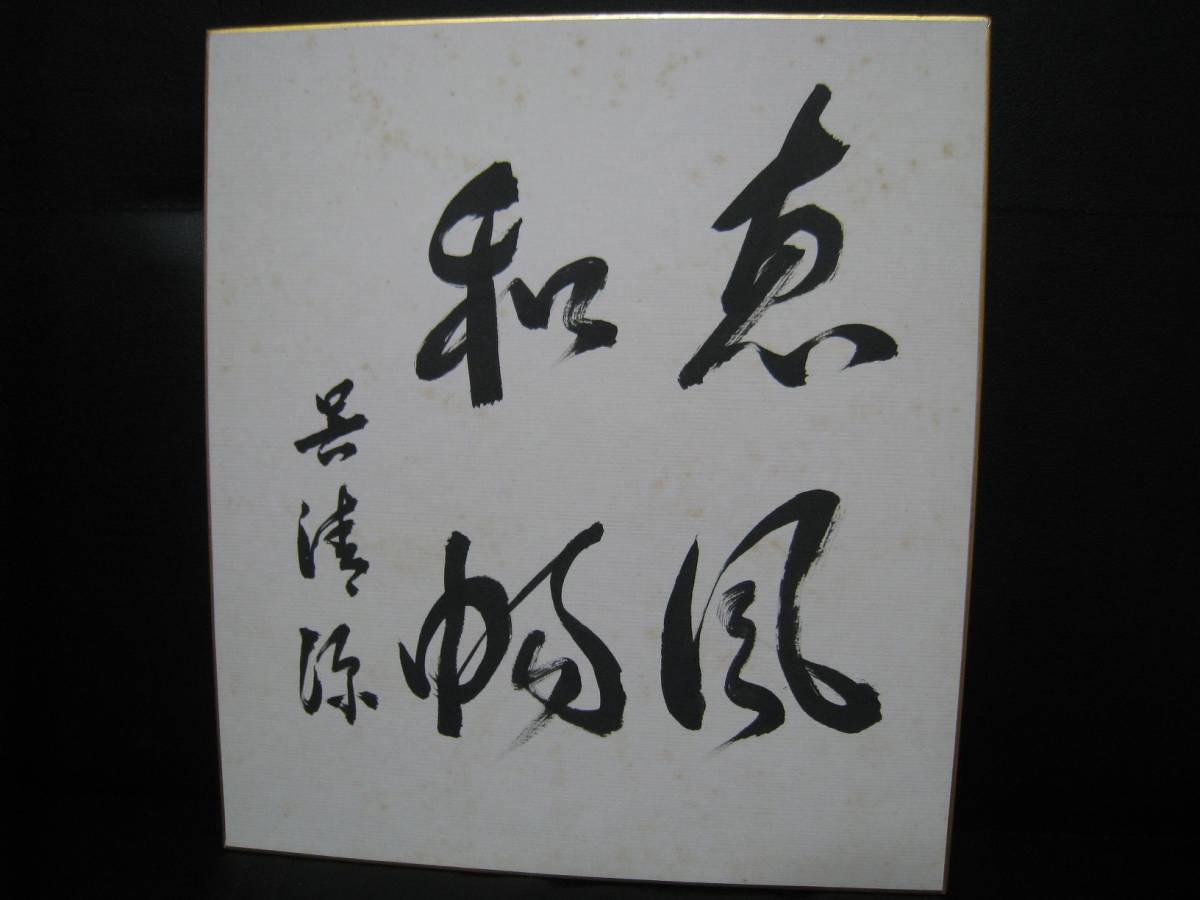 恵風
和暢
呉清源